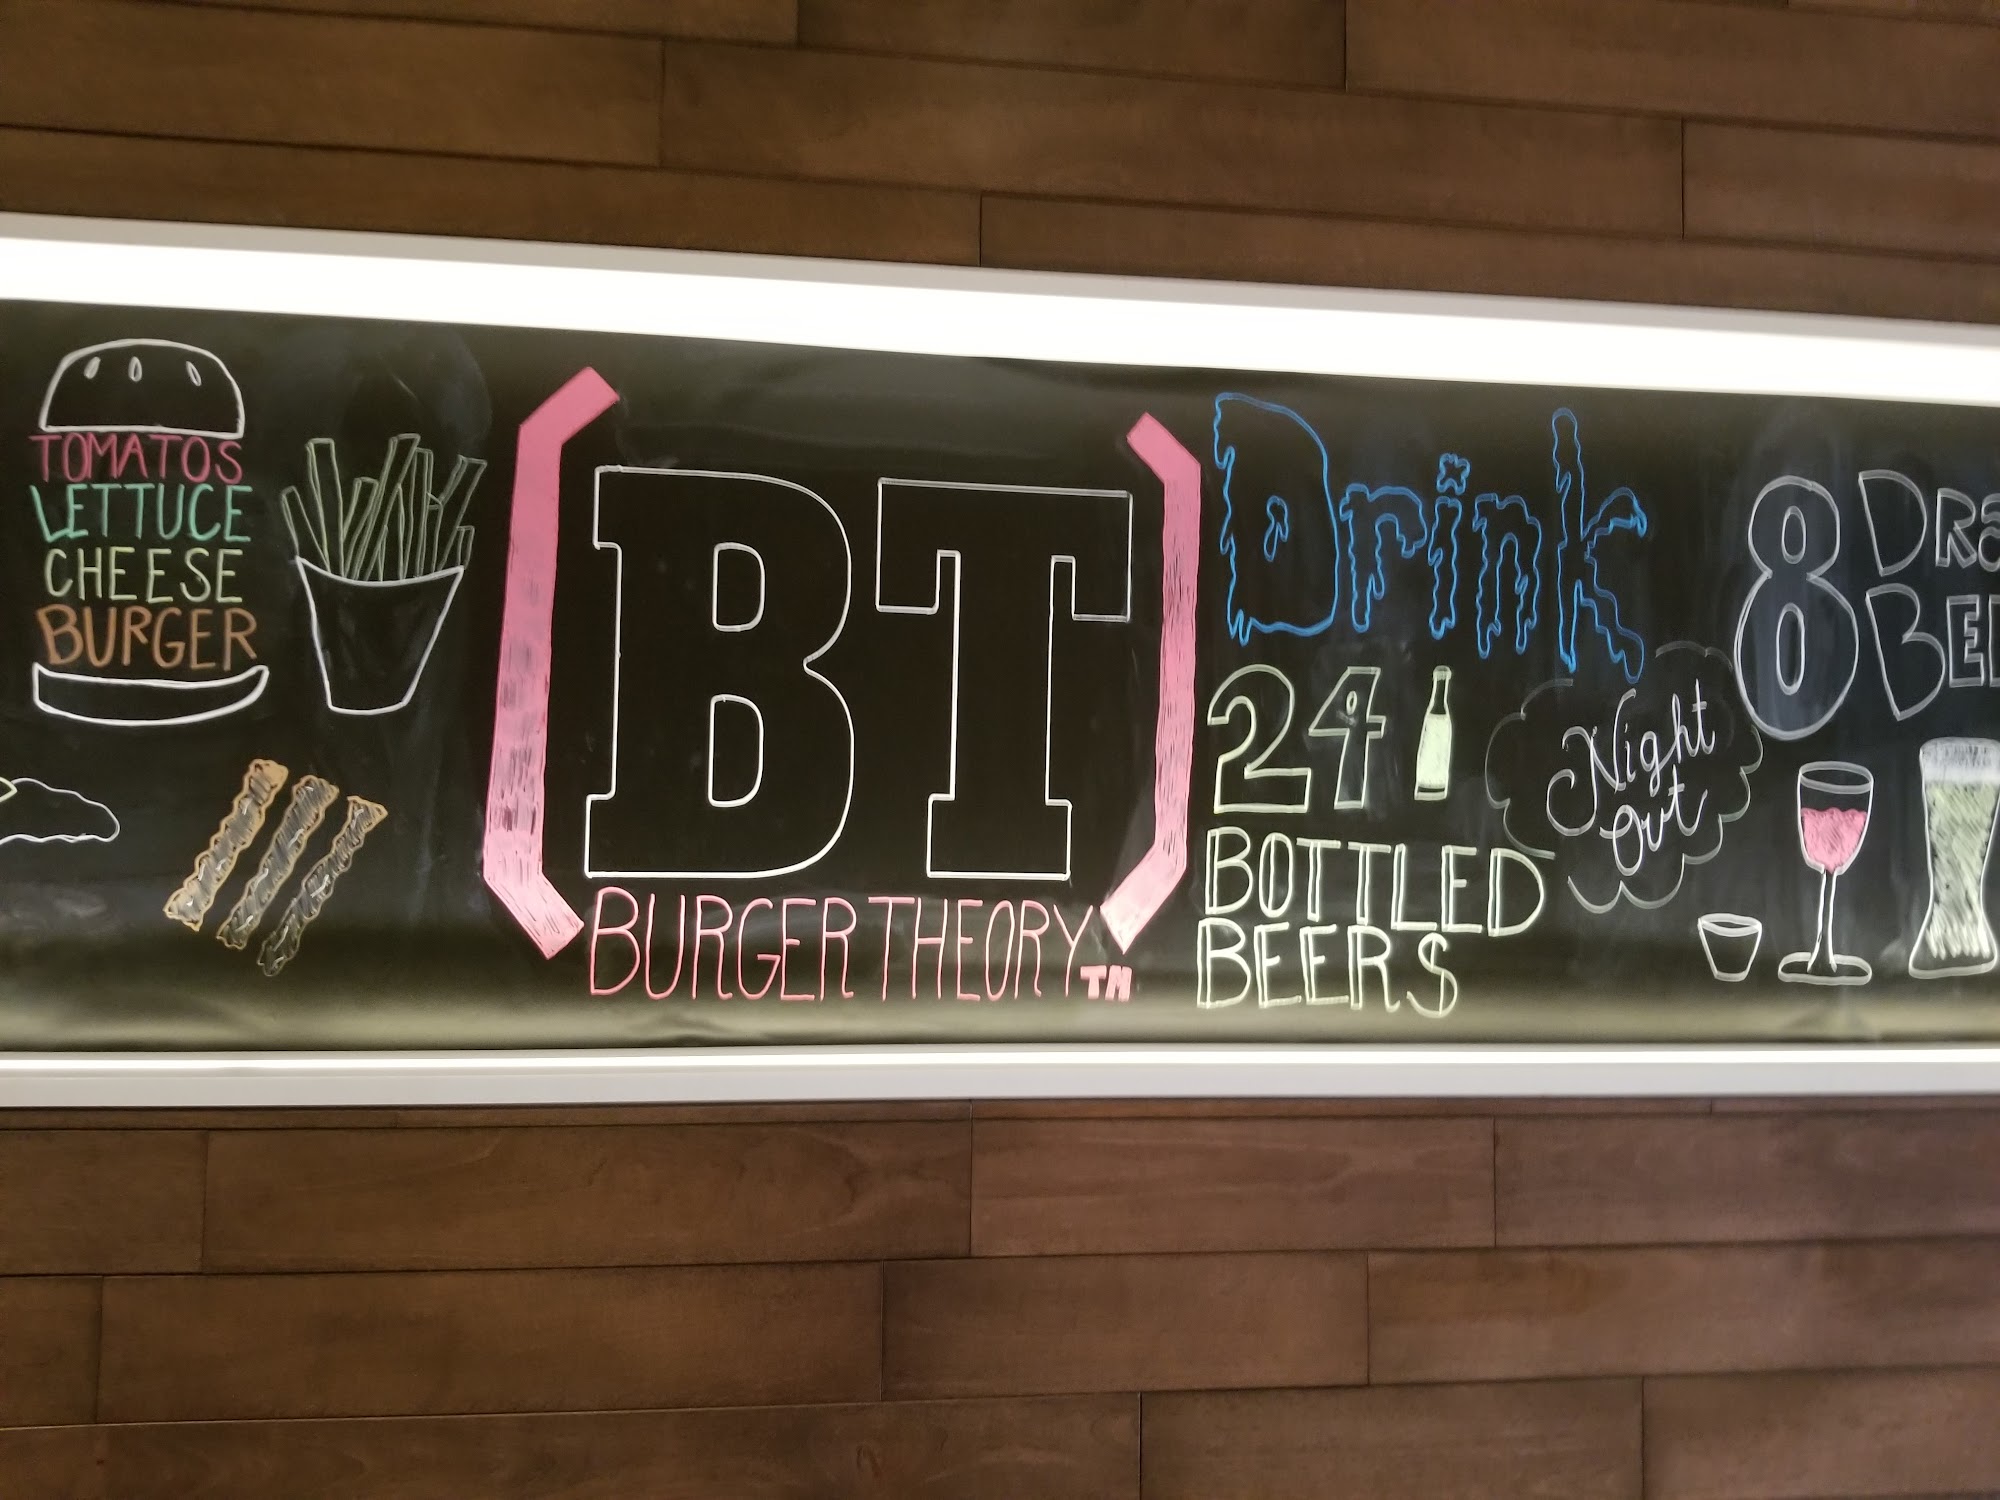 TOMATOS
LETTUCE
CHEESE
BURGER
BT
BURGER THEORY TM
Drink
24
BOTTLED
BEERS
Night
Out
8